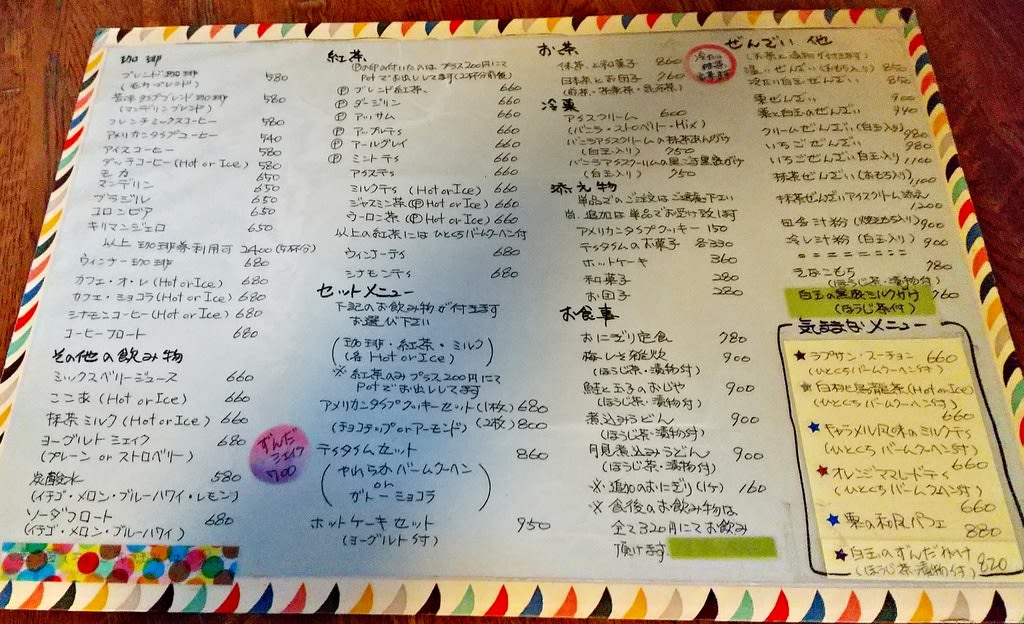 珈琲
ブレンド珈琲 580
(モカブレンド)
苦味タップブレンド珈琲 580
(マンデリンブレンド)
フレンチミックスコーヒー 580
アメリカンタップコーヒー 540
アイスコーヒー 580
ダッチコーヒー(Hot or Ice) 580
モカ 650
マンデリン 650
ブラジル 650
コロンビア 650
キリマンジェロ 650
以上 珈琲券利用可 2400(5杯分)
ウィンナー珈琲 680
カフェ・オ・レ(Hot or Ice) 680
カフェ・ショコラ(Hot or Ice) 680
シナモンコーヒー(Hot or Ice) 680
コーヒーフロート 680
その他の飲み物
ミックスベリージュース 660
ここあ(Hot or Ice) 660
抹茶ミルク(Hot or Ice) 660
ヨーグルトシェイク 680
(プレーン or ストロベリー)
炭酸水 580
(イチゴ・メロン・ブルーハワイ・レモン)
ソーダフロート 680
(イチゴ・メロン・ブルーハワイ)
紅茶
Ⓟの印の付いたのは プラス200円にて
Potでお出ししてます(2杯分前後)
Ⓟ ブレンド紅茶 660
Ⓟ ダージリン 660
Ⓟ アッサム 660
Ⓟ アップルティ 660
Ⓟ アールグレイ 660
Ⓟ ミントティ 660
アイスティ 660
ミルクティ (Hot or Ice) 660
ジャスミン茶(ⓅHot or Ice) 660
ウーロン茶 (ⓅHot or Ice) 660
以上の紅茶には ひとくちバームクーヘン付
ウィンナーティ 680
シナモンティ 680
セットメニュー
下記のお飲み物が付きます
お選び下さい
(珈琲・紅茶・ミルク)
(各 Hot or Ice)
※紅茶のみプラス200円にて
Potでお出ししてます
アメリカンタップクッキーセット(1枚) 680
(チョコチップorアーモンド) (2枚) 800
ティタイムセット 860
(やわらかバームクーヘン
or
ガトーショコラ)
ホットケーキセット 950
(ヨーグルト付)
ずんだ
シェイク
700
お茶
抹茶と和菓子 860
日本茶とお団子 760
冷菓
アイスクリーム 600
(バニラ・ストロベリー・Mix)
バニラアイスクリームの抹茶あんがけ
(白玉入り) 750
バニラアイスクリームの黒ごま黒蜜がけ
(白玉入り) 750
添え物
単品でのご注文はご遠慮下さい
尚、追加は単品でお受け致します
アメリカンタップクッキー 150
ティタイムのお菓子 各330
ホットケーキ 360
和菓子 280
お団子 280
お食事
おにぎり定食 780
梅しそ雑炊 900
(ほうじ茶・漬物付)
鮭と玉子のおじや 900
(ほうじ茶・漬物付)
煮込みうどん 900
(ほうじ茶・漬物付)
月見煮込みうどん 900
(ほうじ茶・漬物付)
※追加のおにぎり(1ケ) 160
※食後のお飲み物は
全て320円にてお飲み
頂けます
ぜんざい 他
(お茶と漬物が付きます)
温いぜんざい(おもち入り) 850
冷たい白玉ぜんざい 850
栗ぜんざい 900
栗と白玉のぜんざい 940
クリームぜんざい(白玉入り) 980
いちごぜんざい 980
いちごぜんざい白玉入り 1100
抹茶ぜんざい(おもち入り) 1100
抹茶ぜんざいアイスクリーム添え
1200
田舎汁粉(焼きもち入り) 900
冷し汁粉(白玉入り) 900
えなこもち 780
(ほうじ茶・漬物付)
白玉の黒蜜ミルクがけ 760
(ほうじ茶付)
気まぐれメニュー
★ラプサン・スーチョン 660
(ひとくちバームクーヘン付)
★白桃烏龍茶(Hot or Ice)
(ひとくちバームクーヘン付)
660
★キャラメル風味のミルクティ
(ひとくちバームクーヘン付)
660
★オレンジマーマレードティ
(ひとくちバームクーヘン付) 660
★栗の和風パフェ
880
★白玉のずんだがけ
(ほうじ茶・漬物付) 820